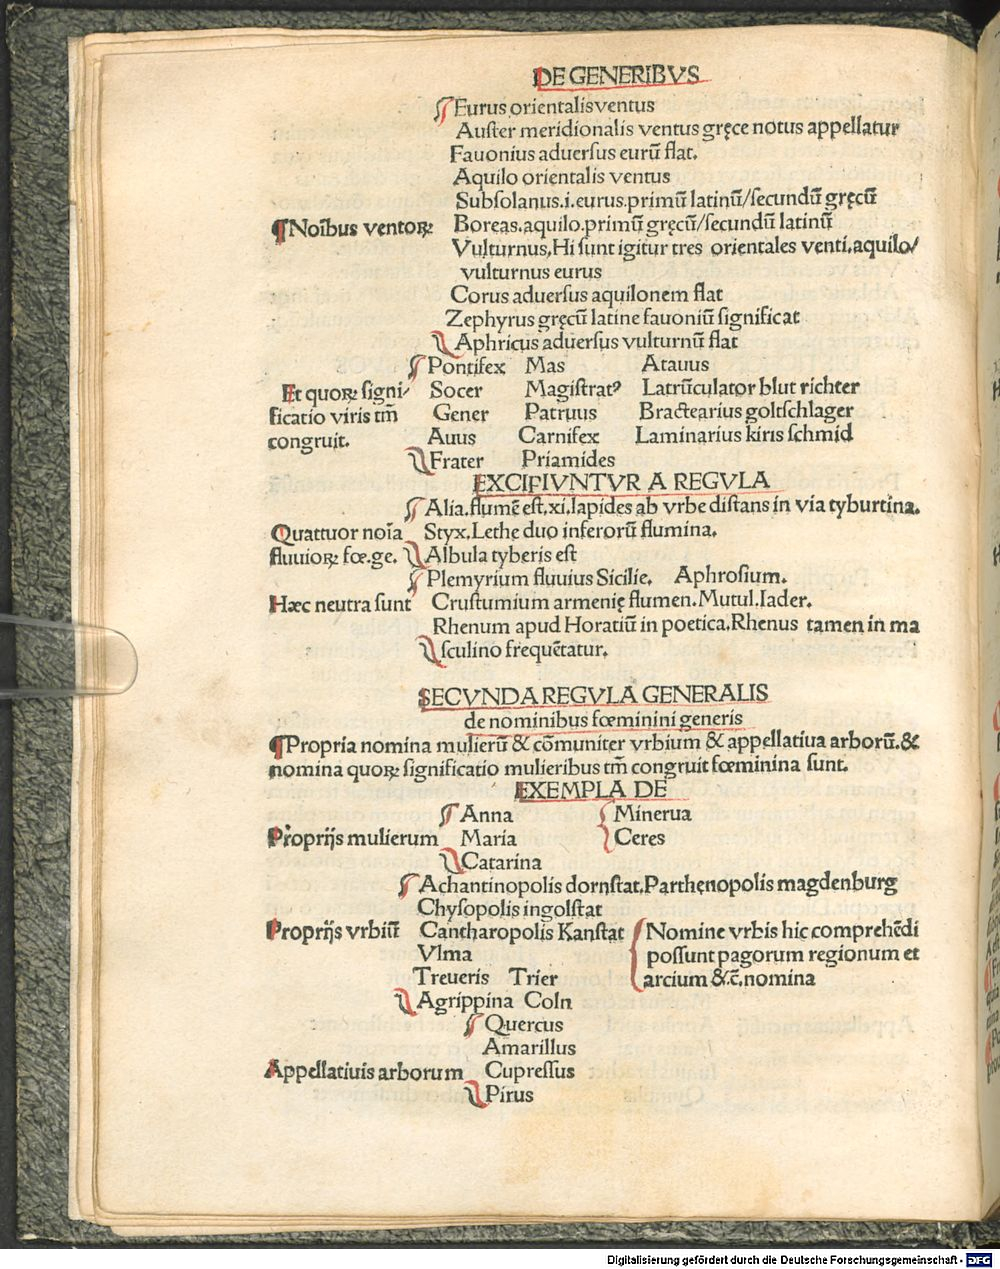 DE GENERIBVS
Eurus orientalis ventus
Auster meridionalis ventus gręce notus appellatur
Fauonius aduersus eurū flat.
Aquilo orientalis ventus
Subsolanus.i.eurus.primū latinū/secundū gręcū
¶Noībus ventoꝝ: Boreas.aquilo.primū gręcū/secundū latinū
Vulturnus,Hi sunt igitur tres orientales venti.aquilo/
vulturnus eurus
Corus aduersus aquilonem flat
Zephyrus gręcū latine fauoniū significat
Aphricus aduersus vulturnū flat
Pontifex Mas Atauus
Et quoꝝ signi/ Socer Magistratꝰ Latrūculator blut richter
ficatio viris tm̄ Gener Patruus Bractearius goltschlager
congruit. Auus Carnifex Laminarius kiris schmid
Frater Priamides
EXCIPIVNTVR A REGVLA
Alia.flumē est.xi.lapides ab vrbe distans in via tyburtina.
Quattuor noīa Styx.Lethe duo inferorū flumina.
fluuioꝝ fœ.ge. Albula tyberis est
Plemyrium fluuius Sicilie. Aphrosium.
Hæc neutra sunt Crustumium armenię flumen.Mutul.Iader.
Rhenum apud Horatiū in poetica.Rhenus tamen in ma
sculino frequētatur.
SECVNDA REGVLA GENERALIS
de nominibus fœminini generis
¶Propria nomina mulierū & cōmuniter vrbium & appellatiua arborū.&
nomina quoꝝ significatio mulieribus tm̄ congruit fœminina sunt.
EXEMPLA DE
Anna Minerua
Proprijs mulierum Maria Ceres
Catarina
Achantinopolis dornstat.Parthenopolis magdenburg
Chysopolis ingolstat
Proprijs vrbiū Cantharopolis Kanstat Nomine vrbis hic comprehēdi
Vlma possunt pagorum regionum et
Treueris Trier arcium &c̄.nomina
Agrippina Coln
Quercus
Amarillus
Appellatiuis arborum Cupressus
Pirus
Digitalisierung gefördert durch die Deutsche Forschungsgemeinschaft - DFG